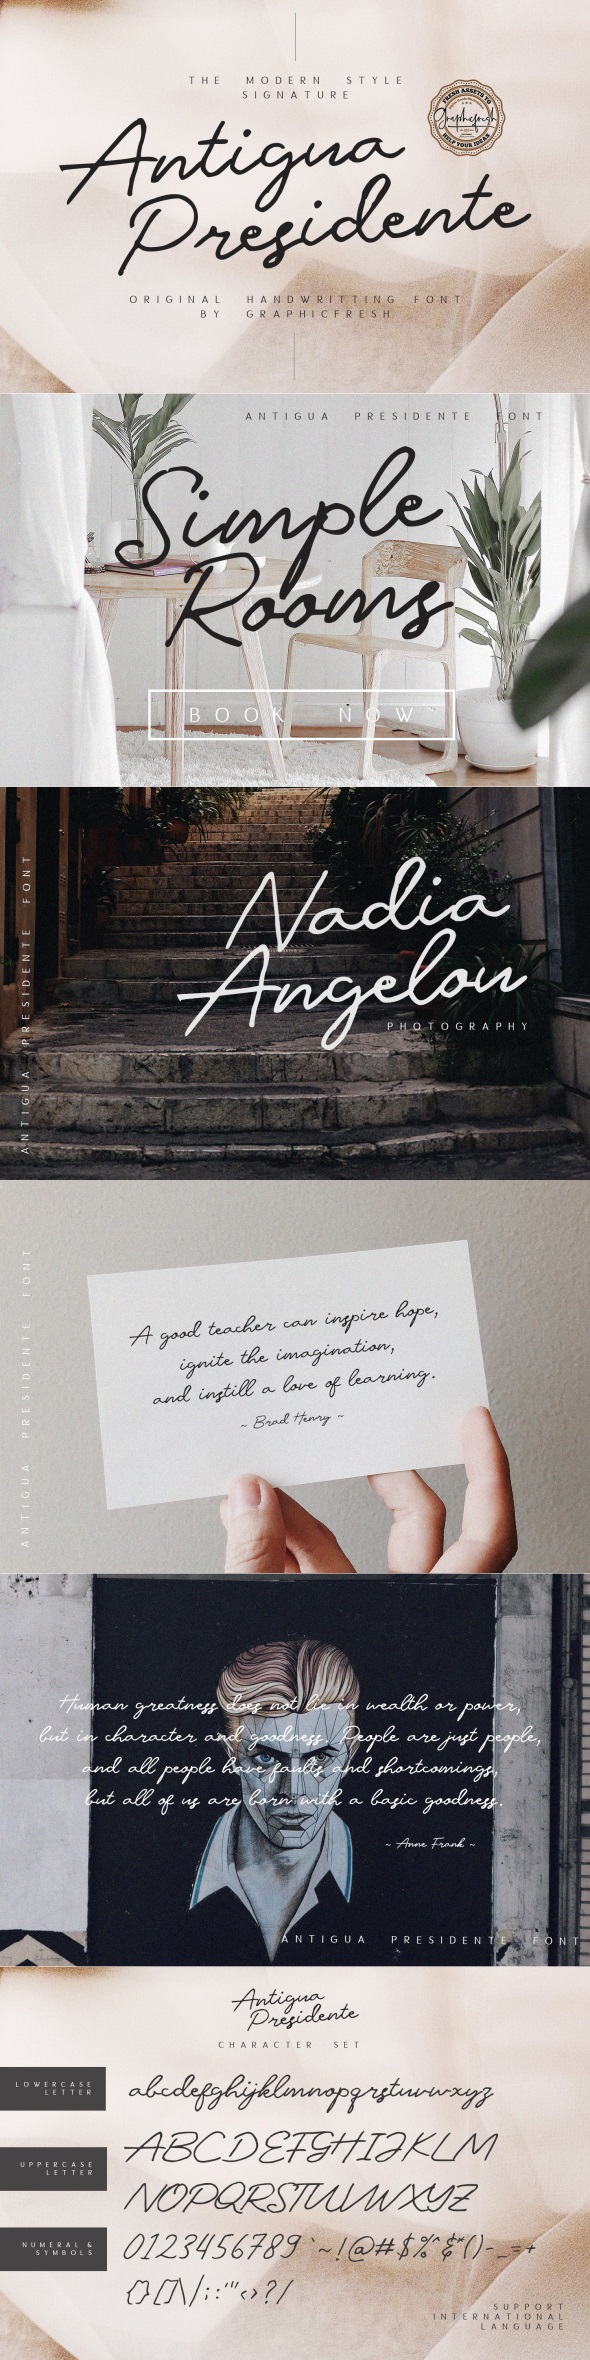 THE MODERN STYLE
SIGNATURE
FRESH ASSETS TO
Graphicfresh
HELP YOUR IDEAS
Antigua
Presidente
ORIGINAL HANDWRITTING FONT
BY GRAPHICFRESH
ANTIGUA PRESIDENTE FONT
Simple
Rooms
BOOK NOW
ANTIGUA PRESIDENTE FONT
Nadia
Angelou
PHOTOGRAPHY
ANTIGUA PRESIDENTE FONT
A good teacher can inspire hope,
ignite the imagination,
and instill a love of learning.
~ Brad Henry ~
Human greatness does not lie in wealth or power,
but in character and goodness. People are just people,
and all people have faults and shortcomings,
but all of us are born with a basic goodness.
~ Anne Frank ~
ANTIGUA PRESIDENTE FONT
Antigua
Presidente
CHARACTER SET
LOWERCASE
LETTER
abcdefghijklmnopqrstuvwxyz
UPPERCASE
LETTER
ABCDEFGHIJKLM
NOPQRSTUVWXYZ
NUMERAL &
SYMBOLS
0123456789`~!@#$%^&*()-_=+
{}[]\|;:'"<>?/
SUPPORT
INTERNATIONAL
LANGUAGE